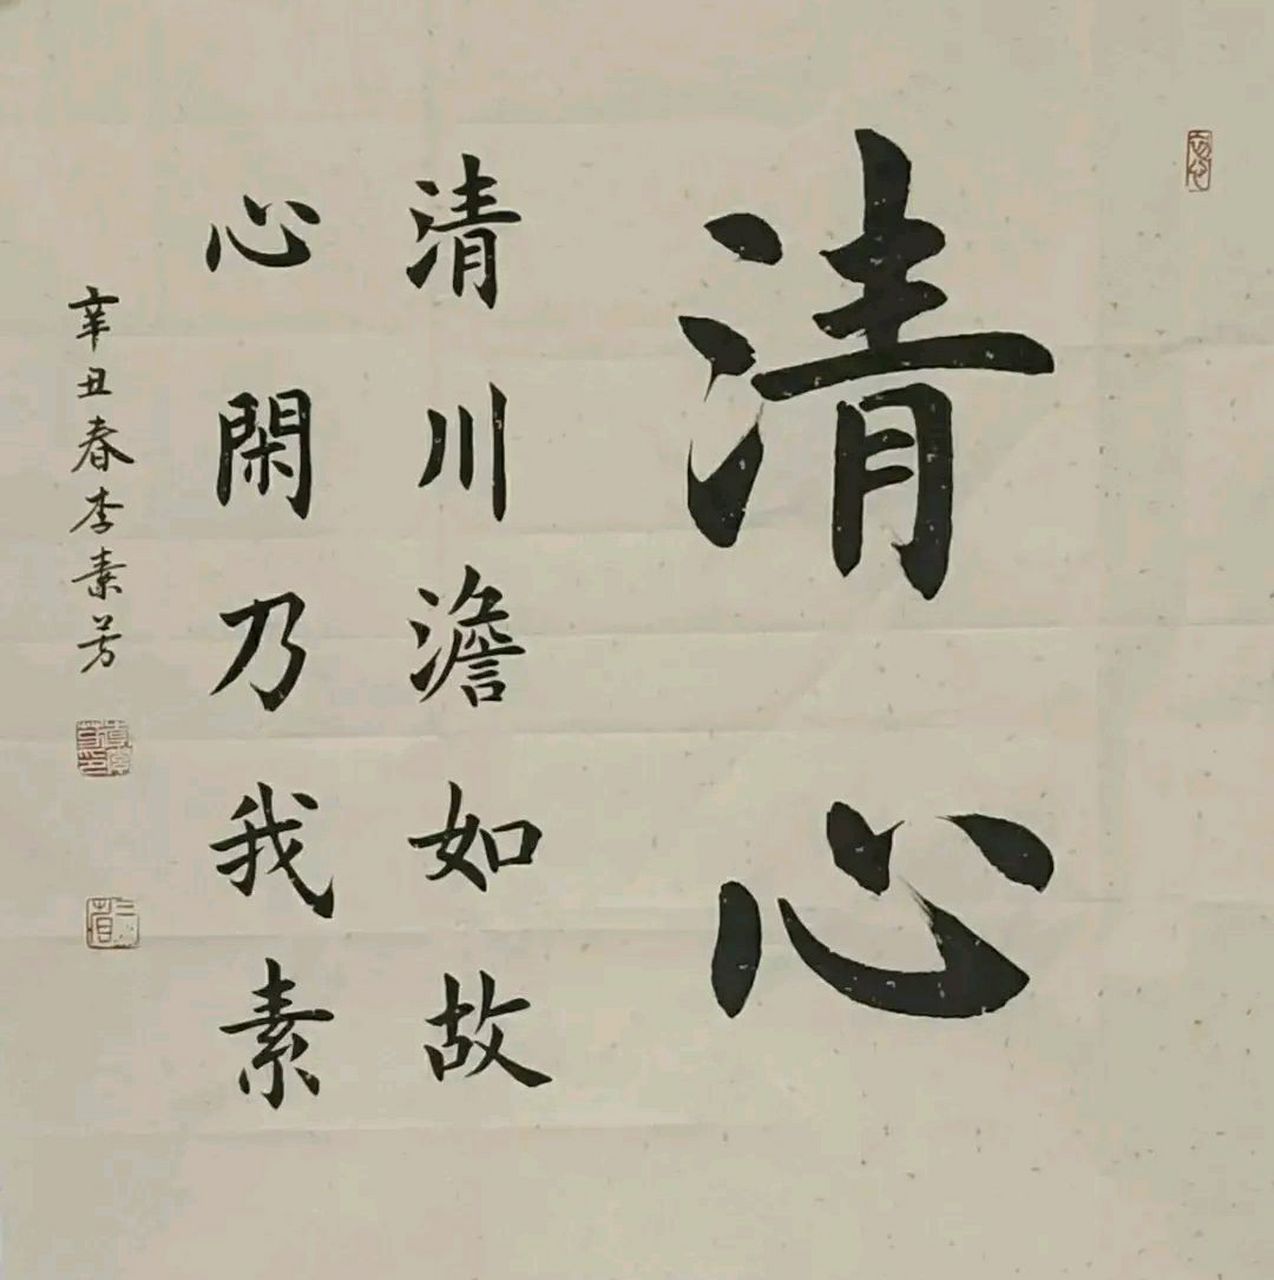 清心
清川澹如故
心閑乃我素
辛丑春李素芳